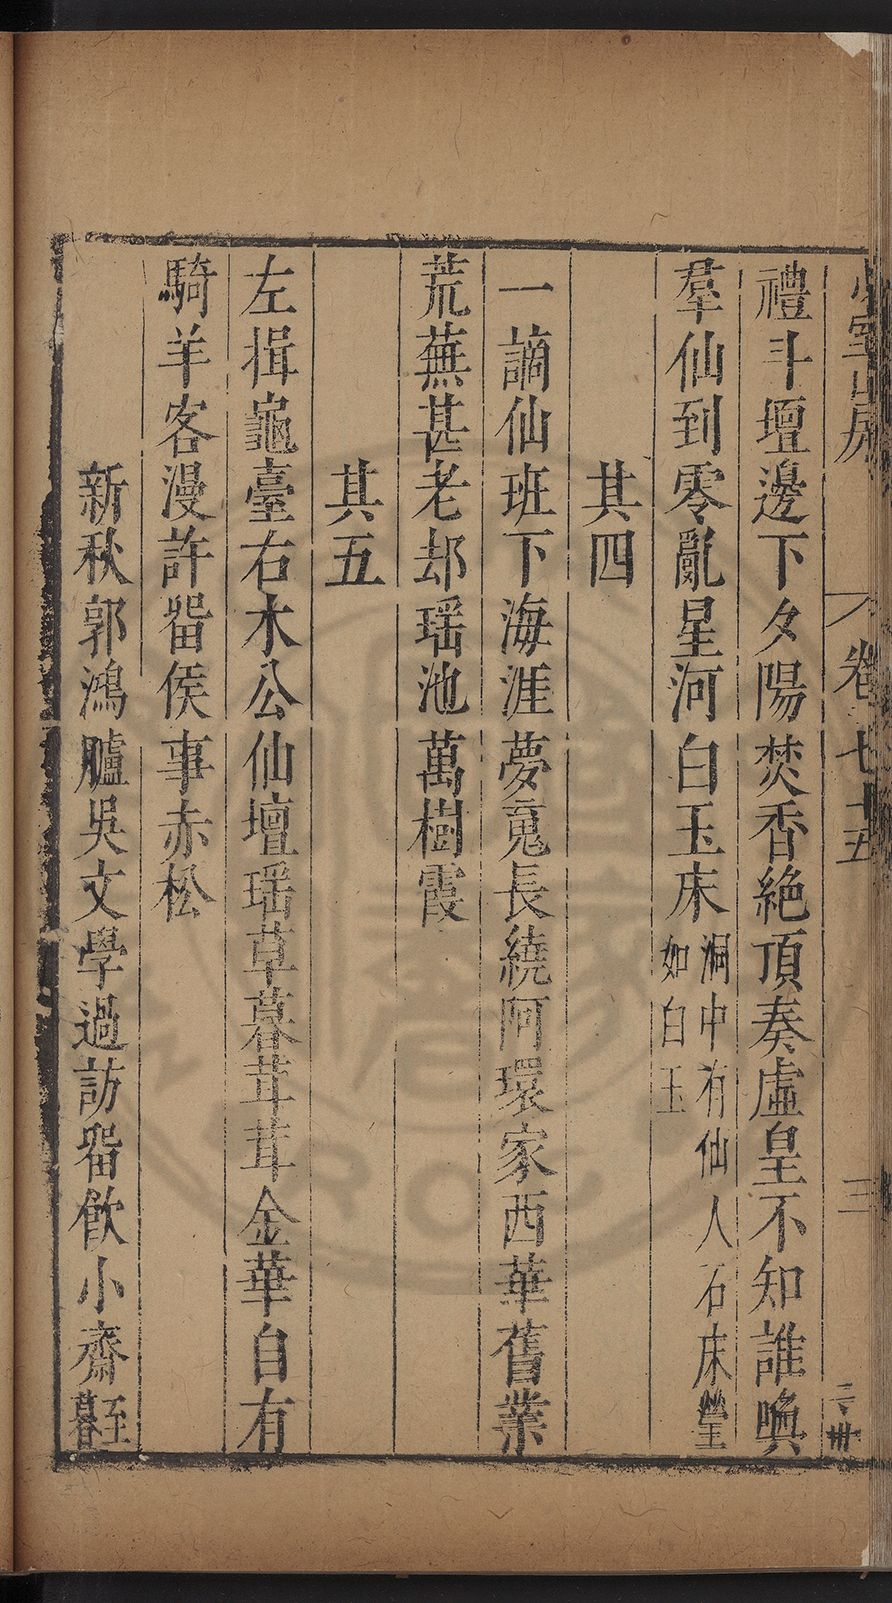 少室山房 卷七十五 三
禮斗壇邊下夕陽焚香絶頂奏虛皇不知誰喚
羣仙到零亂星河白玉床洞中有仙人石床瑩
如白玉
其四
一謫仙班下海涯夢䰟長繞阿環家西華舊業
荒蕪甚老却瑶池萬樹霞
其五
左揖龜臺右木公仙壇瑶草暮茸茸金華自有
騎羊客漫許畱侯事赤松
新秋郭鴻臚吳文學過訪畱飲小齋暮至